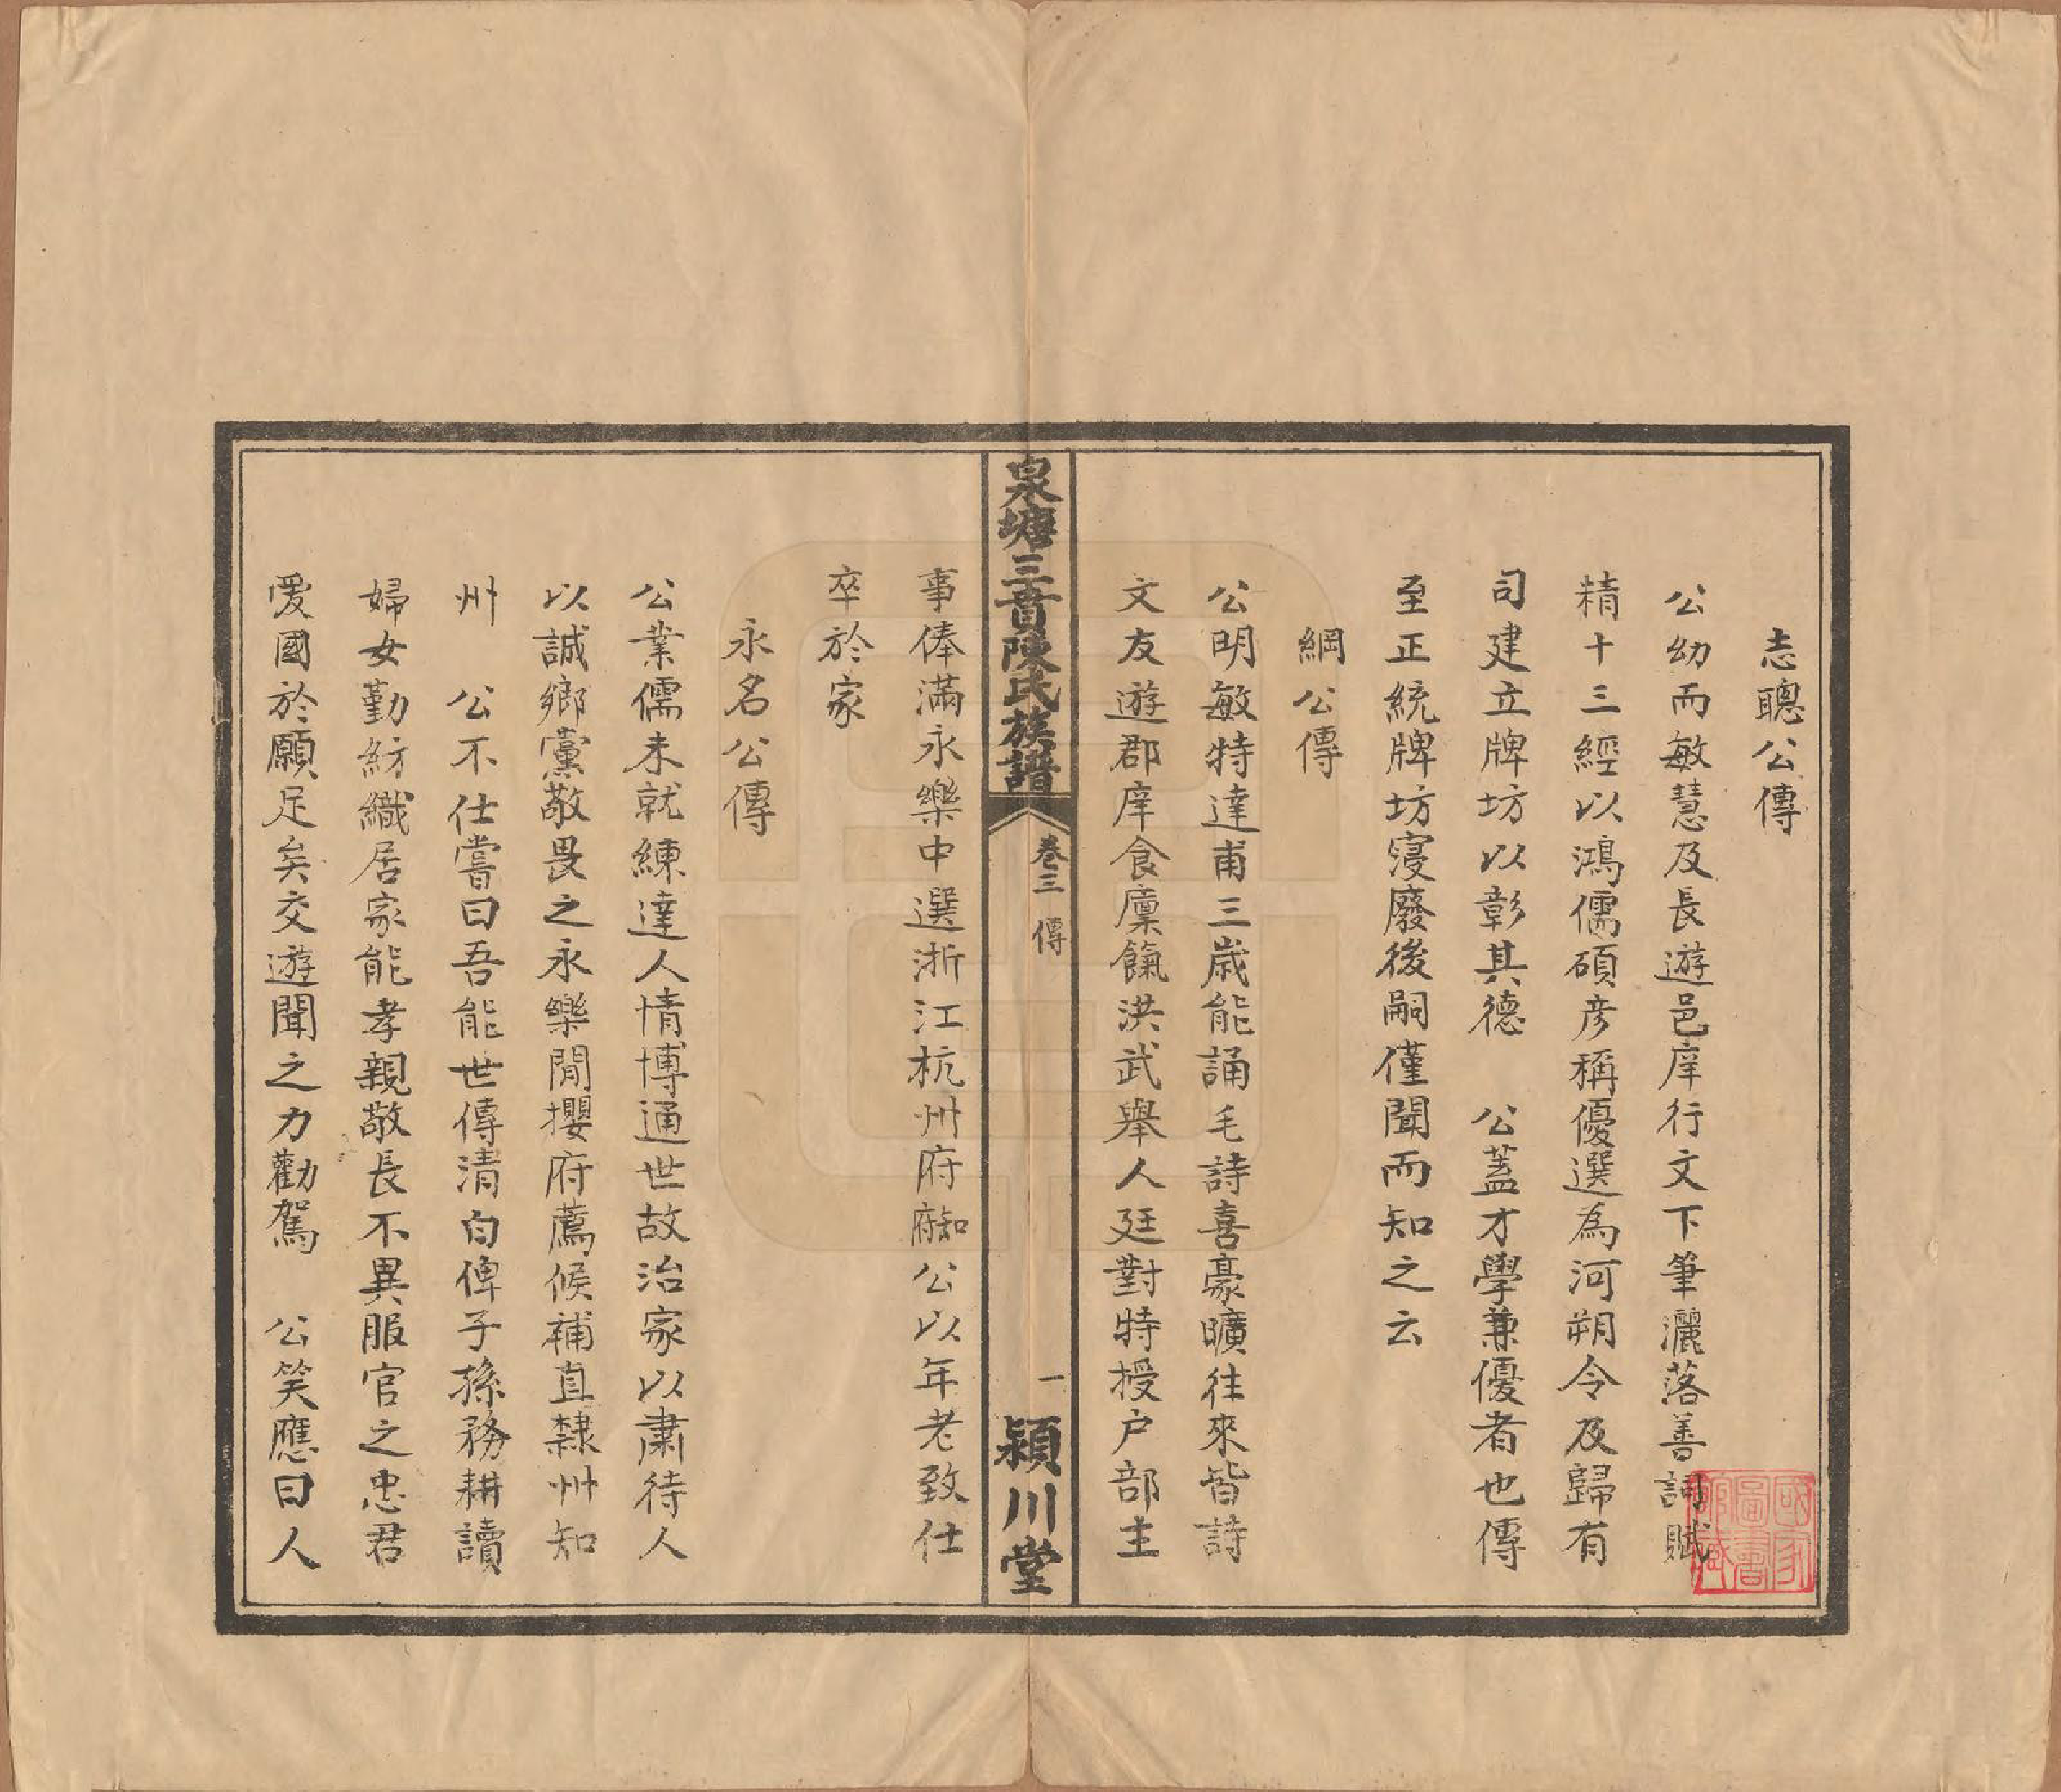 志聰公傳
公幼而敏慧及長遊邑庠行文下筆灑落善詞賦
精十三經以鴻儒碩彦稱優選為河朔令及歸有
司建立牌坊以彰其德　公蓋才學兼優者也傳
至正統牌坊寖廢後嗣僅聞而知之云
綱公傳
公明敏特達甫三歲能誦毛詩喜豪曠往來皆詩
文友遊郡庠食廩餼洪武舉人廷對特授户部主
泉塘三賁陳氏族譜
卷三　傳
一
潁川堂
事俸滿永樂中選浙江杭州府知府公以年老致仕
卒於家
永名公傳
公業儒未就練達人情博通世故治家以肅待人
以誠鄉黨敬畏之永樂間攖府薦候補直隸州知
州　公不仕嘗曰吾能世傳清白俾子孫務耕讀
婦女勤紡織居家能孝親敬長不異服官之忠君
愛國於願足矣交遊聞之力勸駕　公笑應曰人
國家圖書館藏